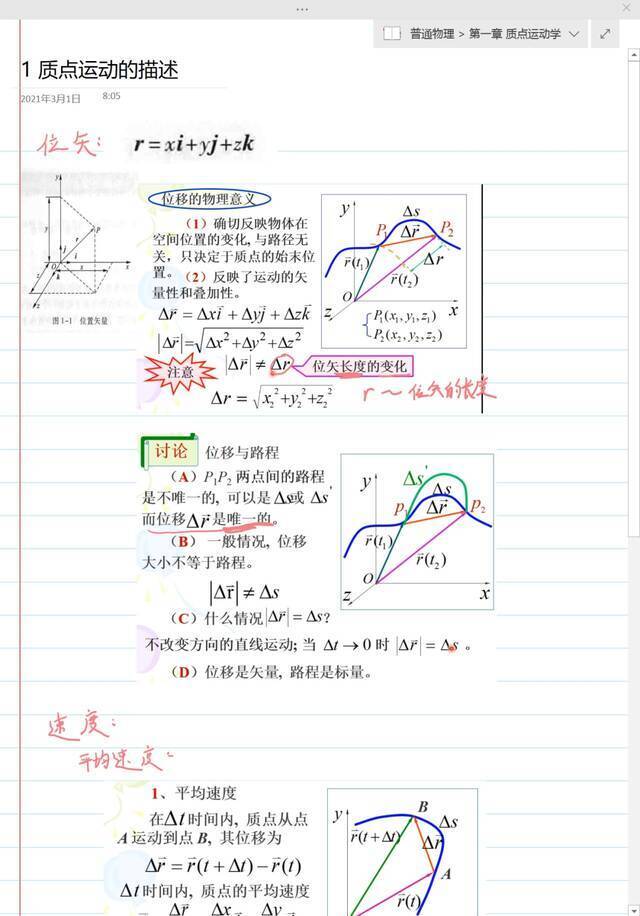 普通物理 > 第一章 质点运动学
1 质点运动的描述
2021年3月1日 8:05
位矢: r = xi+yj+zk
y
P
y
r
j
i
x
z
o
k
x
z
图 1-1 位置矢量
位移的物理意义
(1) 确切反映物体在
空间位置的变化, 与路径无
关，只决定于质点的始末位
置。(2) 反映了运动的矢
量性和叠加性。
Δr⃗ = Δxi⃗ + Δyj⃗ + Δzk⃗
|Δr⃗|=√Δx²+Δy²+Δz²
注意 |Δr⃗| ≠ Δr 位矢长度的变化
Δr = √x₂²+y₂²+z₂²
r ~ 位矢的长度
y
Δs
P₁ Δr⃗ P₂
r⃗(t₁) Δr
r⃗(t₂)
O
P₁(x₁, y₁, z₁)
z x
P₂(x₂, y₂, z₂)
讨论 位移与路程
(A) P₁P₂ 两点间的路程
是不唯一的, 可以是Δs或 Δs'
而位移Δr⃗是唯一的。
(B) 一般情况, 位移
大小不等于路程。
|Δr⃗| ≠ Δs
(C) 什么情况 |Δr⃗| = Δs?
不改变方向的直线运动; 当 Δt → 0 时 |Δr⃗| = Δs 。
(D) 位移是矢量, 路程是标量。
Δs'
y
Δs
p₁ Δr⃗ p₂
r⃗(t₁)
r⃗(t₂)
O
z x
速度:
平均速度:
1、平均速度
在Δt时间内, 质点从点
A 运动到点 B, 其位移为
Δr⃗ = r⃗(t + Δt) − r⃗(t)
Δt时间内, 质点的平均速度
Δr⃗ Δx Δy
y
B
Δs
r⃗(t+Δt) Δr⃗
A
r⃗(t)